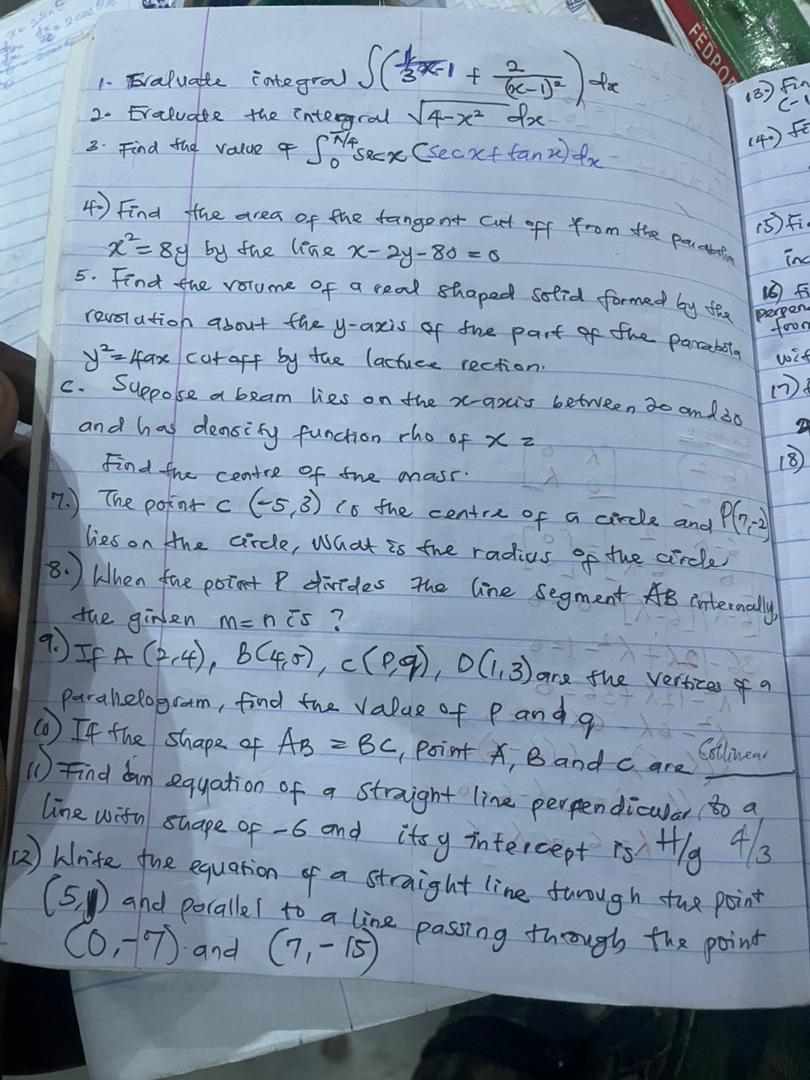 1. Evaluate integral ∫(1/3x-1 + 2/(x-1)²) dx
2. Evaluate the intergral √4-x² dx
3. Find the value of ∫₀^π/4 secx (secx + tanx) dx
4.) Find the area of the tangent cut off from the parabola
x² = 8y by the line x - 2y - 80 = 0
5. Find the volume of a real shaped solid formed by the
revolution about the y-axis of the part of the parabola
y² = 4ax cut off by the lactuce rection.
6. Suppose a beam lies on the x-axis between 20 and 30
and has density function rho of x =
Find the centre of the mass.
7.) The point c (-5,3) is the centre of a circle and P(7,-2)
lies on the circle, what is the radius of the circle
8.) When the point P divides the line segment AB internally,
the given m=n is ?
9.) If A (2,4), B(4,5), C(P,q), D(1,3) are the vertices of a
parallelogram, find the value of P and q
10) If the shape of AB = BC, point A, B and C are Collinear
11) Find an equation of a straight line perpendicular to a
line with shape of -6 and its y intercept is H/g 4/3
12) Write the equation of a straight line through the point
(5, ) and parallel to a line passing through the point
(0,-7) and (7,-15)
FEDPO
13) Fin
(-1
14)
15) Fi
inc
16) Fi
perpen
from
wit
17)
18)